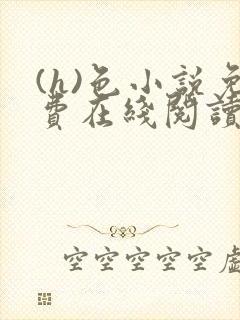 (h)色小説免
費在綫閱讀
空空空空空虛